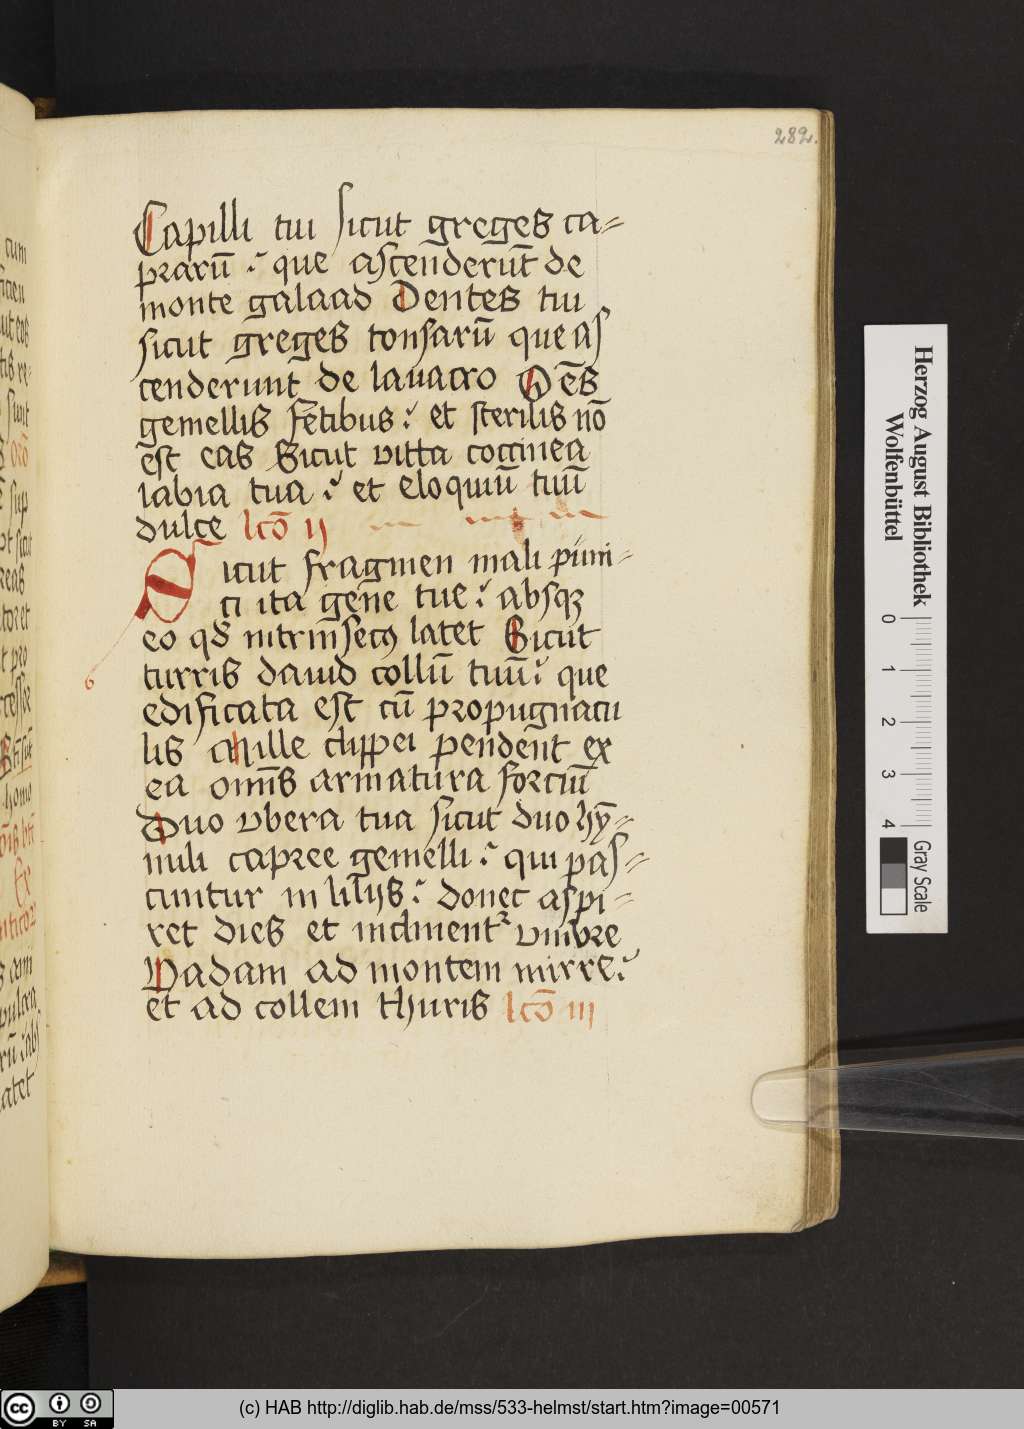 282.
Capilli tui sicut greges ca=
prarū : que ascenderūt de
monte galaad Dentes tui
sicut greges tonsarū que as
cenderunt de lauacro Oēs
gemellis fetibus : et sterilis nō
ēst eas Sicut vitta coccinea
labia tua : et eloquiū tuū
dulce lcō ii
Sicut fragmen mali puni=
ci ita gene tue : absqꝫ
eo qd intrinsecꝰ latet Sicut
turris dauid collū tuū : que
edificata est cū propugnacu
lis Mille clippei pendent ex
ea omīs armatura forciū
Duo vbera tua sicut duo hȳ=
nuli capree gemelli : qui pas=
cuntur in lilijs : donec aspi=
ret dies et inclinent᷑ vmbre
Vadam ad montem mirre :
et ad collem thuris lcō iii
Herzog August Bibliothek
Wolfenbüttel
0 1 2 3 4
Gray Scale
BY SA
(c) HAB http://diglib.hab.de/mss/533-helmst/start.htm?image=00571